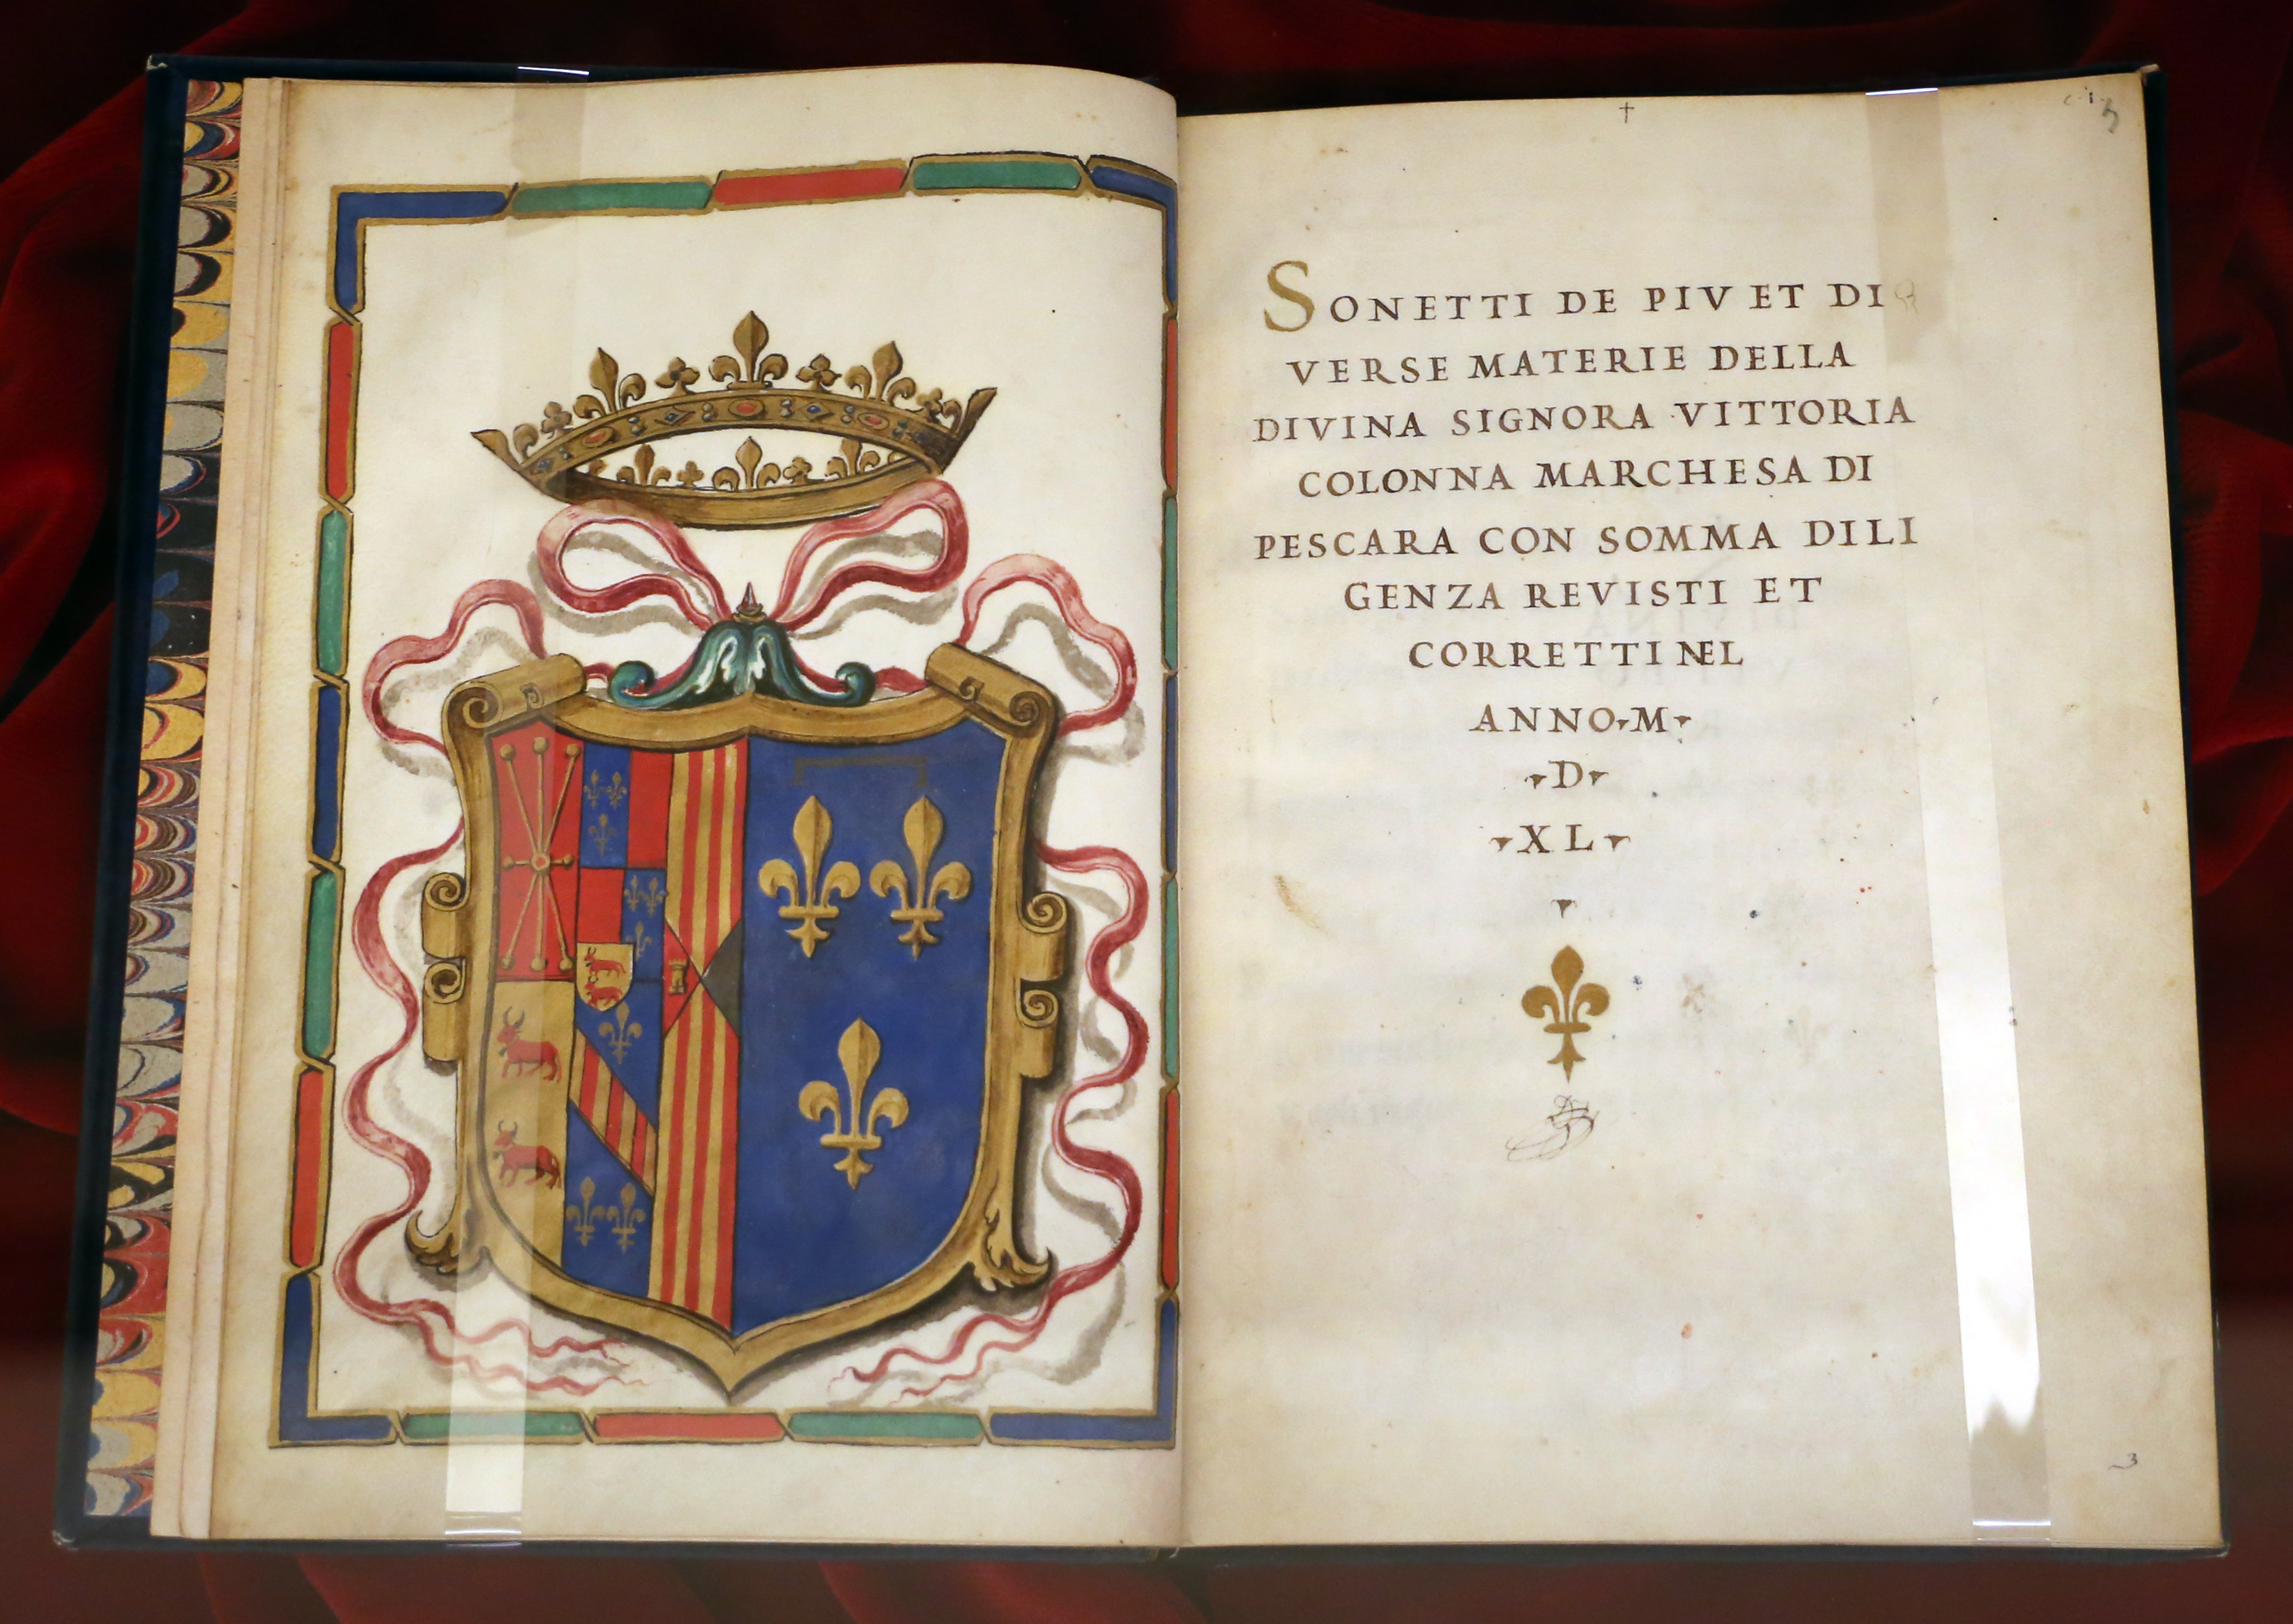 SONETTI DE PIV ET DI
VERSE MATERIE DELLA
DIVINA SIGNORA VITTORIA
COLONNA MARCHESA DI
PESCARA CON SOMMA DILI
GENZA REVISTI ET
CORRETTI NEL
ANNO M
D
XL
3